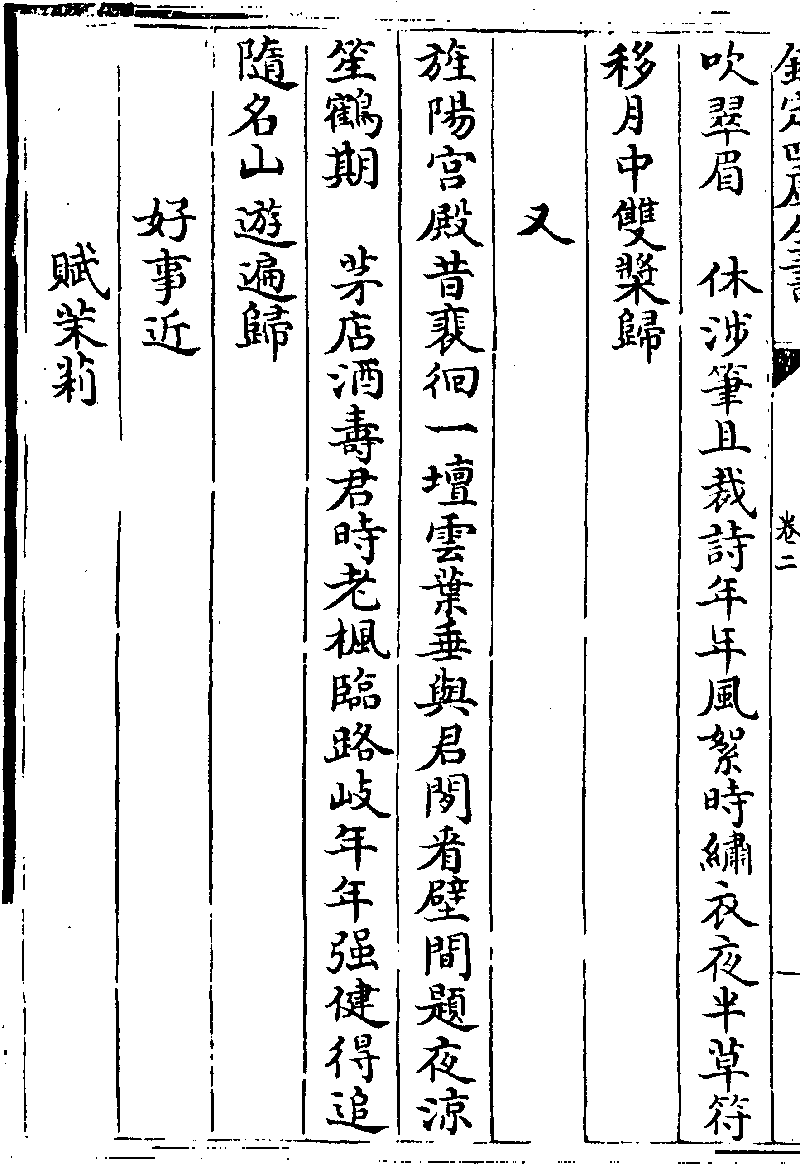 欽定四庫全書
卷二
吹翠眉　休涉筆且裁詩年年風絮時繡衣夜半草符
移月中雙槳歸
又
旌陽宫殿昔裵徊一壇雲葉垂與君閒看壁間題夜涼
笙鶴期　茅店酒壽君時老楓臨路岐年年强健得追
隨名山遊遍歸
好事近
賦茉莉